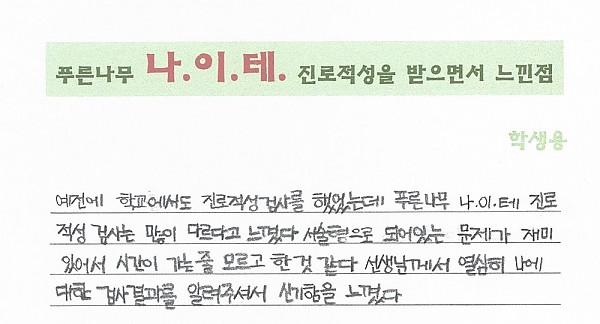 푸른나무 나.이.테. 진로적성을 받으면서 느낀점
학생용
예전에 학교에서도 진로적성검사를 했었는데 푸른나무 나.이.테 진로
적성 검사는 많이 다르다고 느꼈다 서술형으로 되어있는 문제가 재미
있어서 시간이 가는 줄 모르고 한 것 같다 선생님께서 열심히 나에
대한 검사결과를 알려주셔서 신기함을 느꼈다